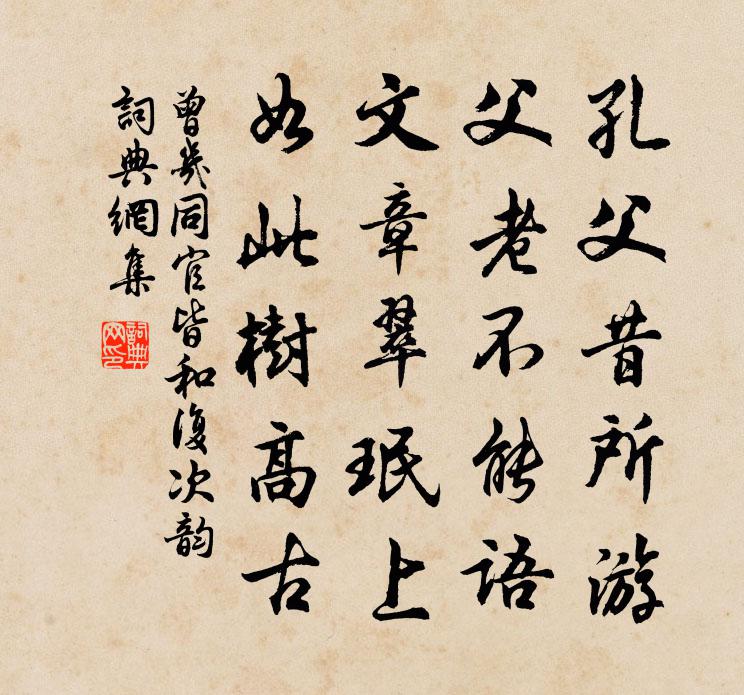 孔父昔所游
父老不能語
文章翠珉上
如此樹高古
曾幾同官皆和復次韵
詞典網集
詞典網印